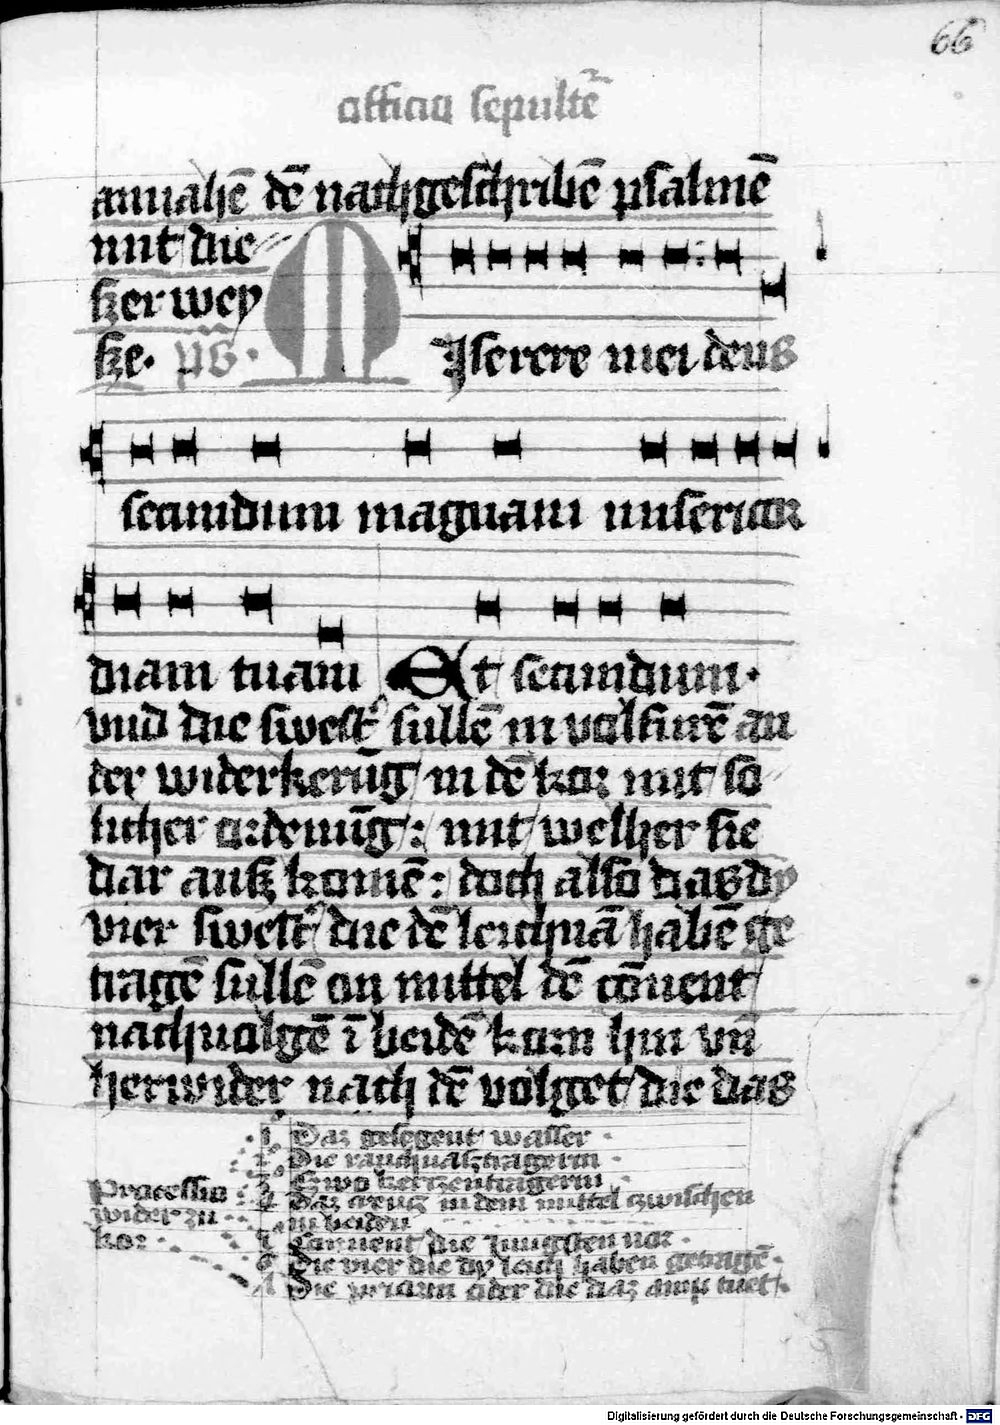 66
officiū sepultē
anuahē dē nachgeschribē psalmē
mit die⸗
ßer wey
ße. ps.
Miserere mei deus
secundum magnam misericor
diam tuam Et secundum.
vnd die swest͛ sullē in volfurē an
der widerkerūg in dē kor mit so⸗
licher ordenūg: mit welher sie
dar auß komē: doch also das dy
vier swest͛ die dē leichnā habē ge
tragē sullē on mittel dē cōuent
nachuolgē ī beidē korn hin vn̄
herwider nach dē volget die das
Processio wider zu kor
1 Daz gelegent wasser.
2 Die rauchuaßtragerin.
3 Zwo kerzentragerin.
4 Daz creucz in dem mittel zwischen
in beiden
5 Conuent die Jungsten vor.
6 Die vier die dy leich haben getragē.
7 Die priorin oder die daz amp tuet.
Digitalisierung gefördert durch die Deutsche Forschungsgemeinschaft - DFG